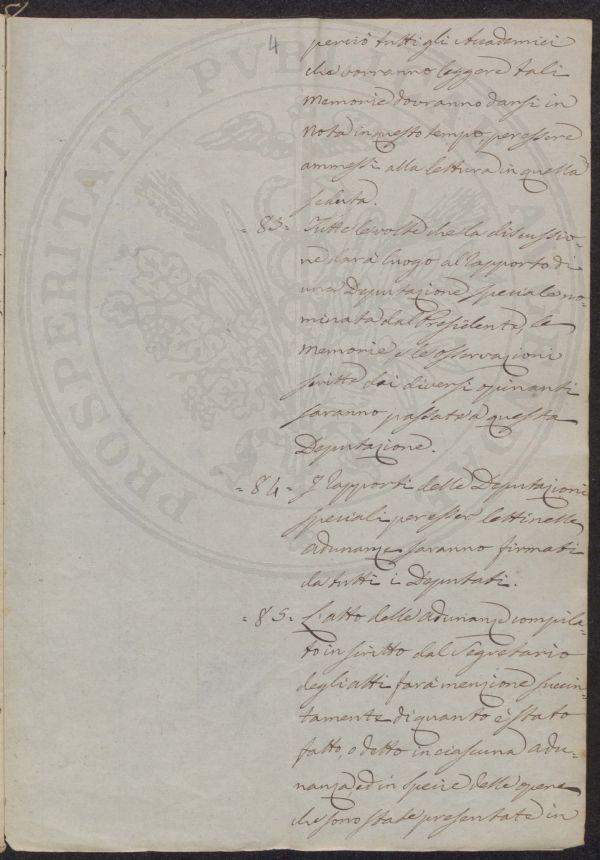 4
perciò tutti gli Accademici
che vorranno leggere tali
Memorie dovranno darsi in
Nota in questo tempo per essere
ammessi alla lettura in quella
seduta.
= 83 = Tutte le volte che la discussio-
ne darà luogo al Rapporto di
una Deputazione speciale no-
minata dal Presidente, le
Memorie e le osservazioni
scritte dai diversi opinanti
saranno passate a questa
Deputazione.
= 84 = I Rapporti delle Deputazioni
speciali per esser letti nelle
adunanze saranno firmati
da tutti i Deputati.
= 85 = L'atto delle adunanze compila-
to in scritto dal Segretario
degli atti farà menzione succin-
tamente di quanto è stato
fatto, o detto in ciascuna adu-
nanza, ed in specie delle opere
che sono state presentate in
PROSPERITATI PVBLICAE